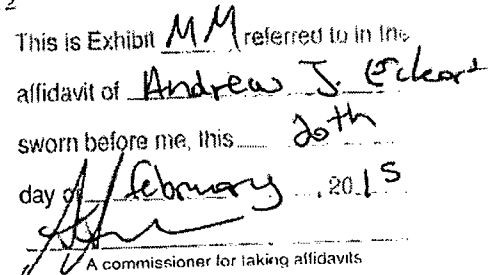 This is Exhibit MM referred to in the
affidavit of Andrew J. Eckart
sworn before me, this 20th
day of february , 2015
A commissioner for taking affidavits